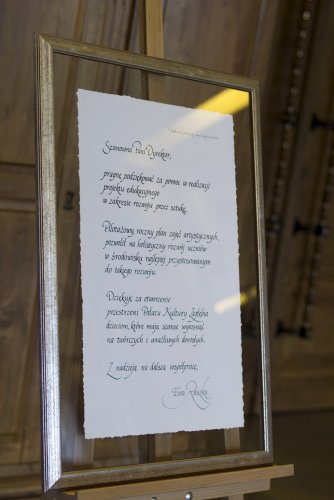 Szanowna Pani Dyrektor,
pragnę podziękować za pomoc w realizacji
projektu edukacyjnego
w zakresie rozwoju przez sztukę.
Pilotażowy roczny plan zajęć artystycznych,
pozwolił na holistyczny rozwój uczniów
w środowisku najlepiej przystosowanym
do takiego rozwoju.
Dziękuję za otworzenie
przestrzeni Pałacu Kultury Zagłębia
dzieciom, które mają szansę wyrosnąć
na twórczych i wrażliwych dorosłych.
Z nadzieją na dalszą współpracę,
Ewa